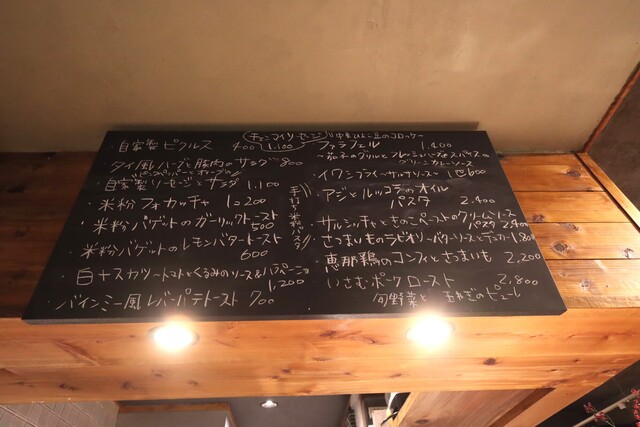 自家製 ピクルス 400
チェンマイソーセージ 1.100
タイ風ハーブと豚肉のサラダ 800
自家製ソーセージとサラダ 1.100
米粉 フォカッチャ 1=200
米粉バゲットのガーリックトースト 500
米粉バゲットのレモンバタートースト 600
白ナスカツ トマトとくるみのソース&
1,200
バインミー風レバーパテトースト 700
中東ひよこ豆のコロッケ
ファラフェル 1.400
イワシフライ 〜サルサソース〜 1匹600
アジとルッコラのオイル
パスタ 2.400
サルシッチャときのこペーストのクリームソース
パスタ 2.400
さつまいものラビオリ 〜バターソース 1.800
恵那鶏のコンフィとさつまいも 2,200
いさむポークロースト 2,800
旬野菜と 玉ねぎのピューレ